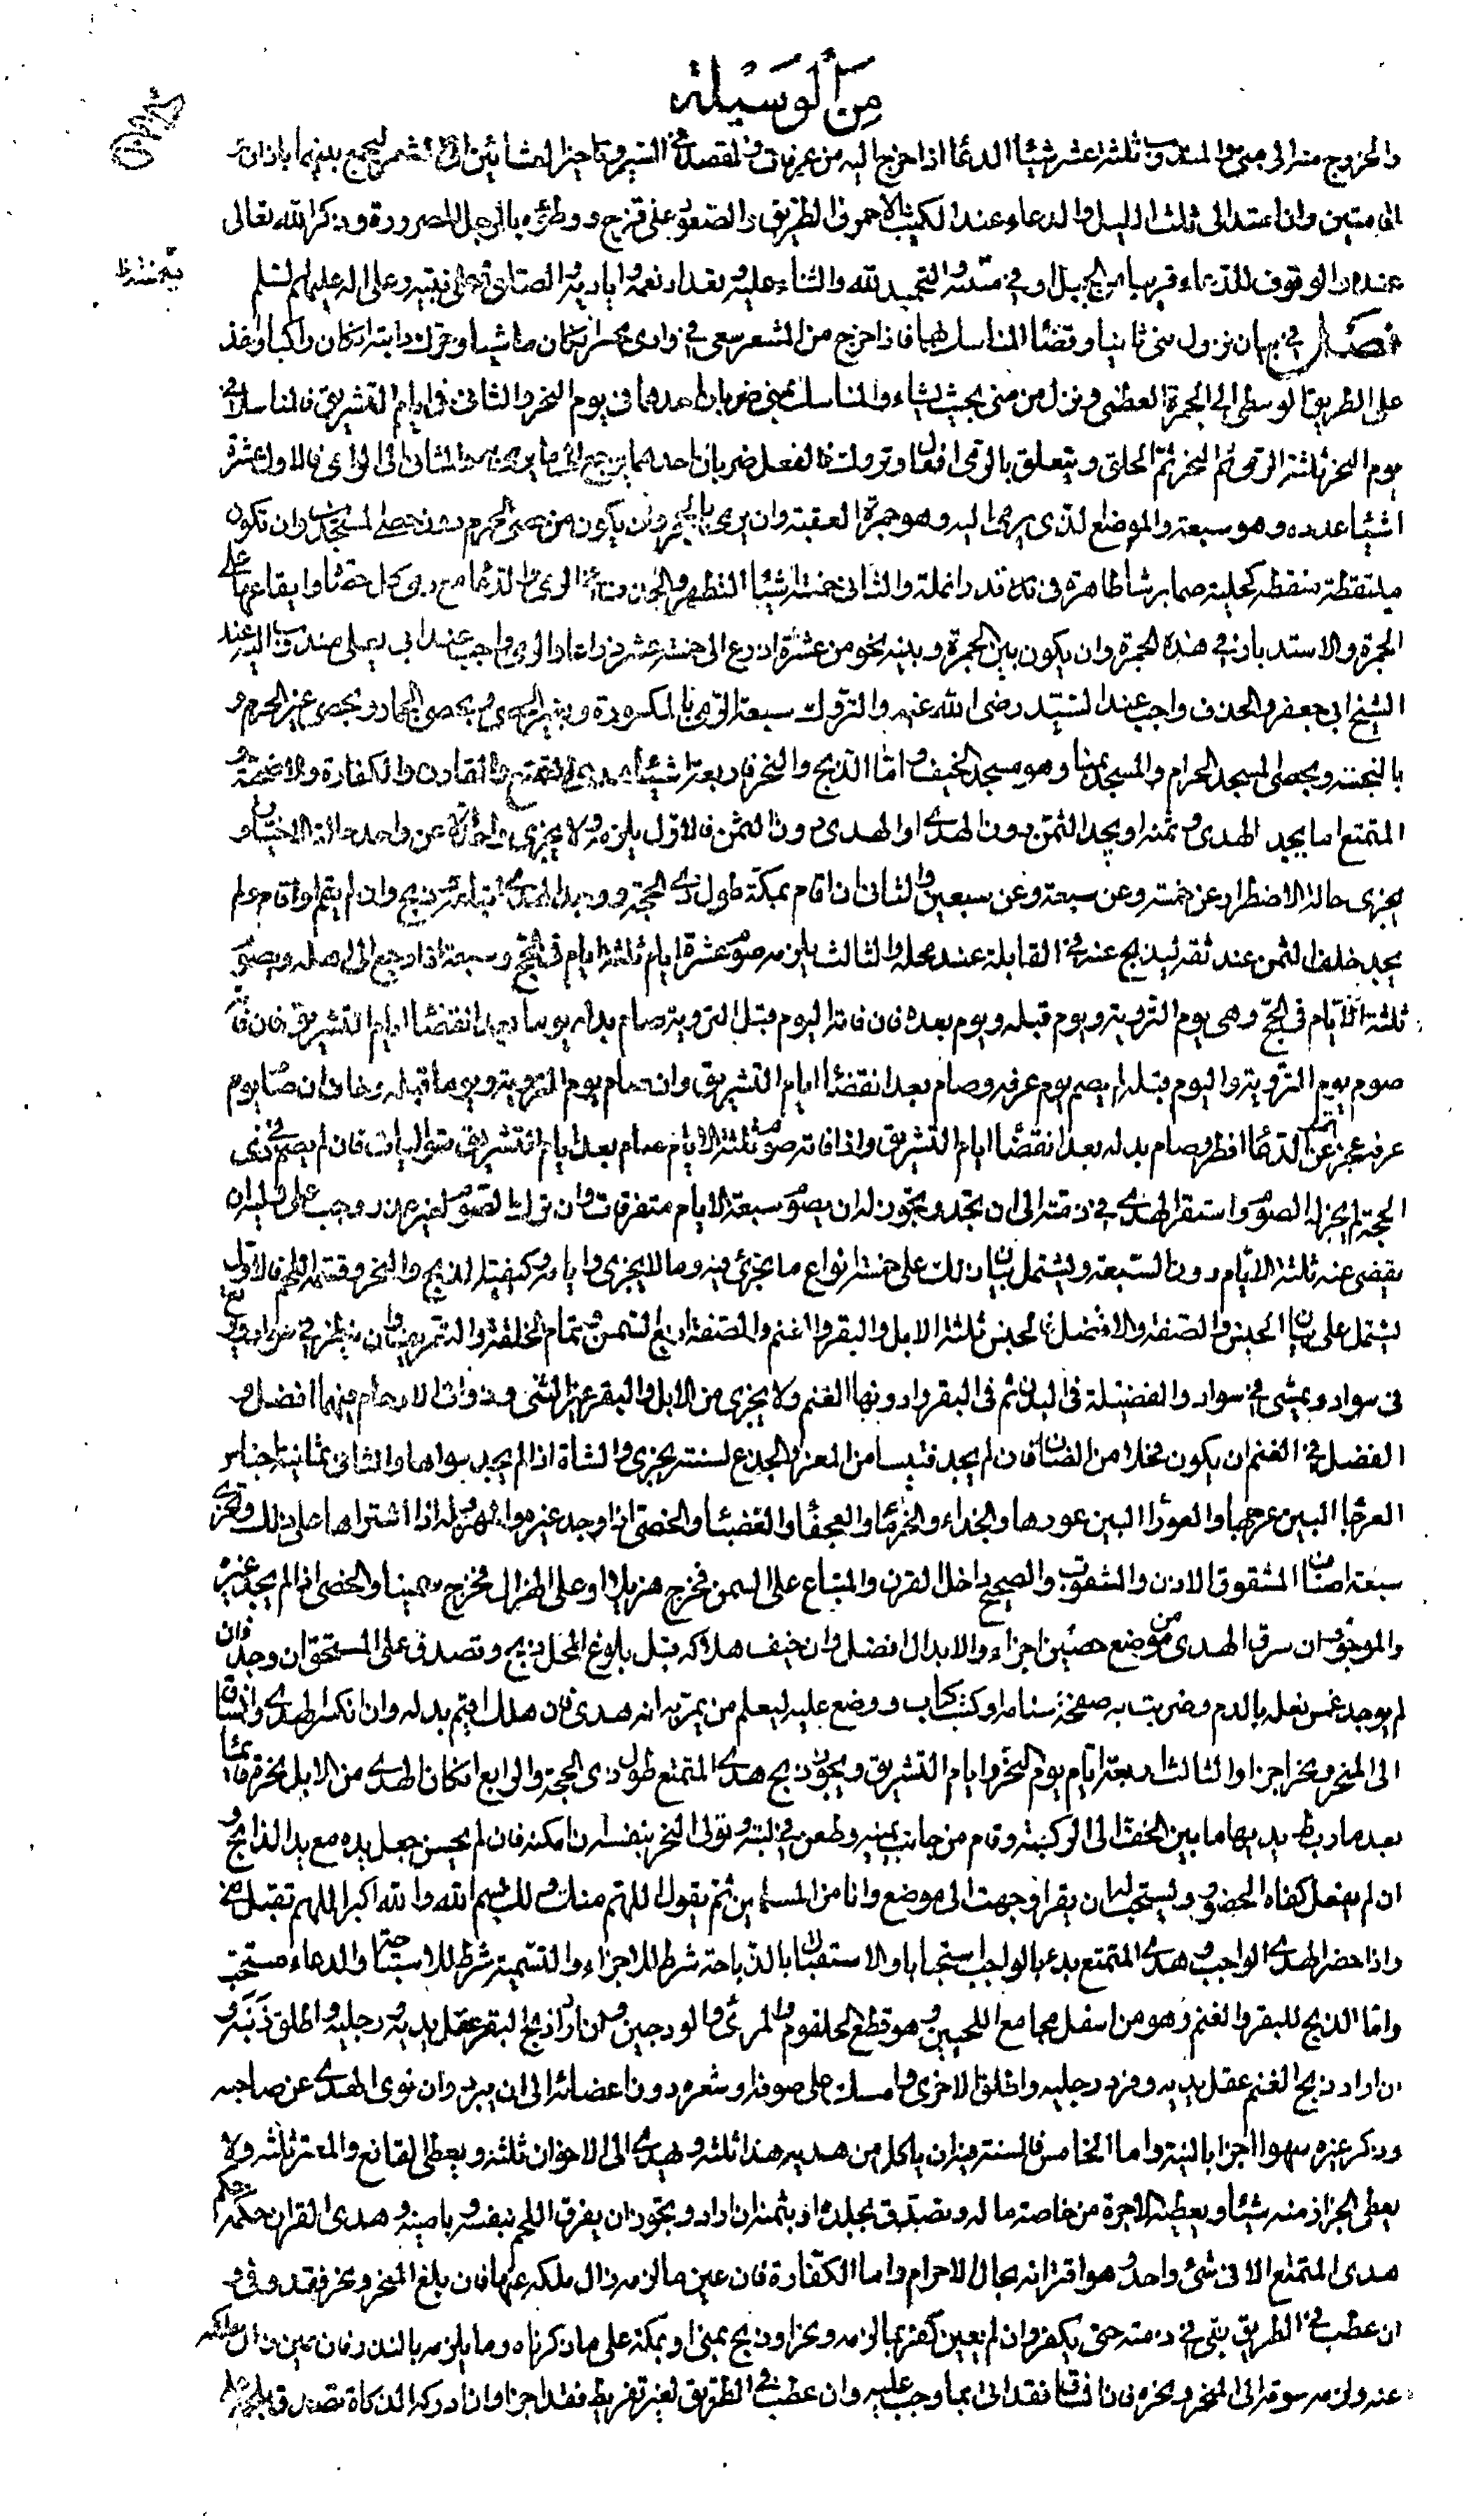 من الوسيلة
والخروج منه الى منى والمندوب ثلثة عشر شيئا الدعا اذا خرج اليه من عرفات والمقصد في السير وتاخير العشائين الى المشعر ليجمع بينهما باذان و
اقامتين وان امتد الى ثلث الليل والدعاء عند الكثيب الاحمر في الطريق والصعود على قزح ووطئه بالرجل للصرورة وذكر الله تعالى
عنده والوقوف للدعاء قريبا من الجبل وفي التحميد لله والثناء عليه وتعداد نعمه واياديه والصلوة على نبيه وعلى اله عليهم السلم
فصل في بيان نزول منى ثانيا وقضا المناسك بها فاذا خرج من المشعر سعى في وادى محسر ان كان ماشيا وحرك دابته ان كان راكبا واخذ
على الطريق الوسطى الى الجمرة العظمى ونزل من منى بحيث يشاء والمناسك بمنى ضربان احدهما في يوم النحر والثانى في ايام التشريق فالمناسك في
يوم النحر ثلثة الرمى ثم النحر ثم الحلق ويتعلق بالرمى افعال وتروك فالفعل ضربان احدهما يرجع الى ما يرمى به والثانى الى الرامى فالاول عشرة
اشيا عدده وهو سبعة والموضع الذى يرمى اليه وهو جمرة العقبة وان يرمى بالحجر وان يكون من حصى الحرم دون حصى المسجدين وان تكون
ملتقطة منقطة كحلية صما برشا طاهرة في قدر انملة والثانى خمسة اشيا التطهر والدعا مع رمى كل حصاة وايقاعها على
الجمرة والاستدبار في هذه الجمرة وان يكون بين الجمرة وبينه نحو من عشرة اذرع الى خمسة عشر ذراعا والرمى واجب عند ابى يعلى مندوب اليه عند
الشيخ ابى جعفر والحذف واجب عند السيد رضى الله عنهم والتروك سبعة الرمى بالمكسورة وبغير الحصى وبحصى الجمار وبحصى غير الحرم و
بالنجسة وبحصى المسجد الحرام والمسجد بمنا وهو مسجد الخيف واما الذبح والنحر فاربعة اشيا هدى المتمتع والقارن والكفارة والاضحية و
المتمتع اما يجد الهدى وثمنه او يجد الثمن دون الهدى او الهدى دون الثمن فالاول يلزمه ولا يجزى واحد الا عن واحد حالة الاختيار و
يجزى حالة الاضطرار عن خمسة وعن سبعة وعن سبعين والثانى ان اقام بمكة طول ذى الحجة ووجد الهدى ابتاعه وذبح وان لم يقم او اقام ولم
يجد خلف الثمن عند ثقة ليذبح عنه في القابلة عند محله والثالث يلزمه صوم عشرة ايام ثلثة ايام في الحج وسبعة اذا رجع الى اهله ويصوم
ثلثة الايام في الحج وهى يوم التروية ويوم قبله ويوم بعده فان فاته اليوم قبل التروية صام بدله يوما بعد انقضا ايام التشريق فان فاته
صوم يوم التروية واليوم قبله لم يصم يوم عرفة وصام بعد انقضا ايام التشريق وان صام يوم التروية ويوما قبله وخاف ان صام يوم
عرفة عجز عن الدعا افطر وصام بدله بعد انقضا ايام التشريق واذا فاته صوم ثلثة الايام صام بعد ايام التشريق متواليات فان لم يصم في ذى
الحجة لم يجز له الصوم واستقر الهدى في ذمته الى ان يجد ويجوز له ان يصوم سبعة الايام متفرقات وان ترك الصوم لغير عذر وجب على وليه ان
يقضى عنه ثلثة الايام دون السبعة ويشتمل بيان ذلك على خمسة انواع ما يجزى فيه وما لا يجزى وايامه وكيفية الذبح والنحر وقسمة اللحم فالاول
يشتمل على بيان الجنس والصفة والافضل فالجنس ثلثة الابل والبقر والغنم والصفة اربع السمن وتمام الخلقة وان ينظر في سواد ويرتع
في سواد ويمشى في سواد والفضيلة في الابل ثم في البقر وادونها الغنم ولا يجزى من الابل والبقر غير الثنى وذوات الارحام منهما افضل و
الفضل في الغنم ان يكون فحلا من الضان فان لم يجد فتيسا من المعز والجذع لسنة يجزى والشاة اذا لم يجد سواها والثانى ثمانية اجناس
العرجا البين عرجها والعورا البين عورها والجذاء والخرما والعجفا والغضبا والخصى اذا وجد غيره والمهزولة اذا اشتراها على ذلك وتجزى
سبعة اصناف المشقوق الاذن والمثقوب والصحيح داخل القرن والمبتاع على السمن فخرج هزيلا وعلى الهزال فخرج سمينا والخصى اذا لم يجد غيره
والموجؤ وان سرق الهدى من موضع حصين اجزاء والابدال افضل وان خيف هلاكه قبل بلوغ المحل ذبح وتصدق على المستحق ان وجد وان
لم يوجد غمس نعله بالدم وضربت به صفحة سنامه او كتب كتاب ووضع عليه ليعلم من يمر به انه هدى فان هلك اقيم بدله وان انكسر الهدى وانساق
الى المنحر ونحر اجزا والثالث اربعة ايام يوم النحر وايام التشريق ويجوز ذبح هدى المتمتع طول ذى الحجة والرابع ان كان الهدى من الابل نحر قائما
بعد ما ربط يديها ما بين الخف الى الركبة وقام من جانب يمينه وطعن في لبته وتولى النحر بنفسه ان امكنه فان لم يحسن جعل يده مع يد الذابح و
ان لم يفعل كفاه الحضور ويستحب ان يقرا وجهت الى موضع وانا من المسلمين ثم يقول اللهم منك ولك بسم الله والله اكبر اللهم تقبل منى
واذا حضر الهدى الواجب وهدى المتمتع بدء بالواجب استحبابا والاستقبال بالذباحة شرط للاجزاء والتسمية شرط للاستباحة والدعاء مستحب
واما الذبح للبقر والغنم وهو من اسفل مجامع اللحيين وهو قطع الحلقوم والمرى والودجين وان اراد ذبح البقر عقل يديه ورجليه واطلق ذنبه و
ان اراد ذبح الغنم عقل يديه وفرد رجليه واطلق الاخرى وامسك على صوفه او شعره دون اعضائه الى ان يبرد وان نوى الهدى عن صاحبه
وذكر غيره سهوا اجزا بالنية واما الخامس فالسنة فيه ان ياكل من هديه هذا ثلثه ويهدى الى الاخوان ثلثه ويعطى القانع والمعتر ثلثه ولا
يعطى الجزار منه شيئا ويعطيه الاجرة من خاصة ماله ويتصدق بجلده او بثمنه ان اراد ويجوز ان يفرق اللحم بنفسه وبامينه وهدى القران حكمه حكم
هدى المتمتع الا في شئ واحد وهو اقترانه بحال الاحرام واما الكفارة فان عين ما لزمه زال ملكه عنها فان بلغ المنحر ونحر فقد وفى و
ان عطب في الطريق بقى في ذمته حتى يكفر وان لم يعين كفر بما لزمه ونحر او ذبح بمنى او بمكة على ما ذكرناه وما يلزمه بالنذر فان عين زال ملكه
عنه ولزمه سوقه الى المنحر ونحره فان انساق فقد اتى بما وجب عليه وان عطب في الطريق لغير تفريط فقد اجزا وان ادركه الذكاة تصدق بلحمه على